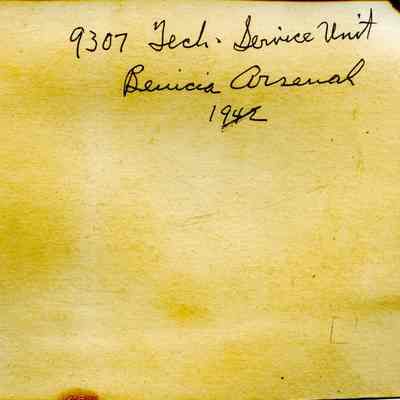 9307 Tech. Service Unit
Benicia Arsenal
1942